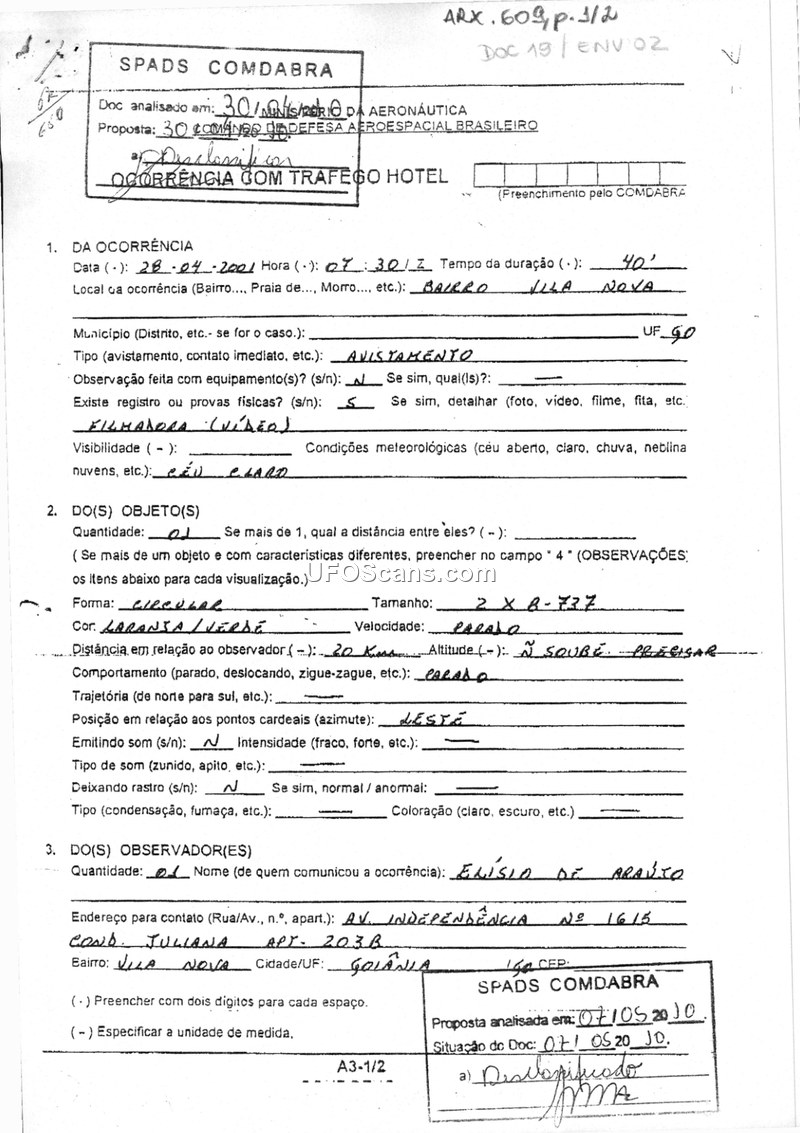 ARX. 609, p. 1/2
DOC 19 / ENV 02
67/650
SPADS COMDABRA
Doc analisado em: 30/04/2010
MINISTÉRIO DA AERONÁUTICA
Proposta: 30
COMANDO DE DEFESA AEROESPACIAL BRASILEIRO
a) Desclassificar
OCORRÊNCIA COM TRAFEGO HOTEL
(Preenchimento pelo COMDABRA
1. DA OCORRÊNCIA
Data ( · ): 28 - 04 - 2001 Hora ( · ): 07 : 30 / Z Tempo da duração ( · ): 40'
Local da ocorrência (Bairro..., Praia de..., Morro..., etc.): BAIRRO VILA NOVA
Município (Distrito, etc.- se for o caso.): UF GO
Tipo (avistamento, contato imediato, etc.): AVISTAMENTO
Observação feita com equipamento(s)? (s/n): N Se sim, qual(is)?: —
Existe registro ou provas físicas? (s/n): S Se sim, detalhar (foto, vídeo, filme, fita, etc.
FILMADORA (VÍDEO)
Visibilidade ( – ): Condições meteorológicas (céu aberto, claro, chuva, neblina
nuvens, etc.): CÉU CLARO
2. DO(S) OBJETO(S)
Quantidade: 01 Se mais de 1, qual a distância entre eles? ( – ):
( Se mais de um objeto e com características diferentes, preencher no campo " 4 " (OBSERVAÇÕES)
os itens abaixo para cada visualização.)
UFOScans.com
Forma: CIRCULAR Tamanho: 2 X B-737
Cor: LARANJA / VERDE Velocidade: PARADO
Distância em relação ao observador ( – ): 20 Km Altitude ( – ): Ñ SOUBE PRECISAR
Comportamento (parado, deslocando, zigue-zague, etc.): PARADO
Trajetória (de norte para sul, etc.): —
Posição em relação aos pontos cardeais (azimute): LESTE
Emitindo som (s/n): N Intensidade (fraco, forte, etc.): —
Tipo de som (zunido, apito, etc.): —
Deixando rastro (s/n): N Se sim, normal / anormal: —
Tipo (condensação, fumaça, etc.): — Coloração (claro, escuro, etc.) —
3. DO(S) OBSERVADOR(ES)
Quantidade: 01 Nome (de quem comunicou a ocorrência): ELÍSIO DE ARAÚJO
Endereço para contato (Rua/Av., n.º, apart.): AV. INDEPENDÊNCIA Nº 1615
COND. JULIANA APT. 203B
Bairro: VILA NOVA Cidade/UF: GOIÂNIA / GO CEP:
( · ) Preencher com dois dígitos para cada espaço.
( – ) Especificar a unidade de medida.
SPADS COMDABRA
Proposta analisada em: 07/05 2010.
Situação do Doc: 07/ 05 20 10.
a) Desclassificado
A3-1/2